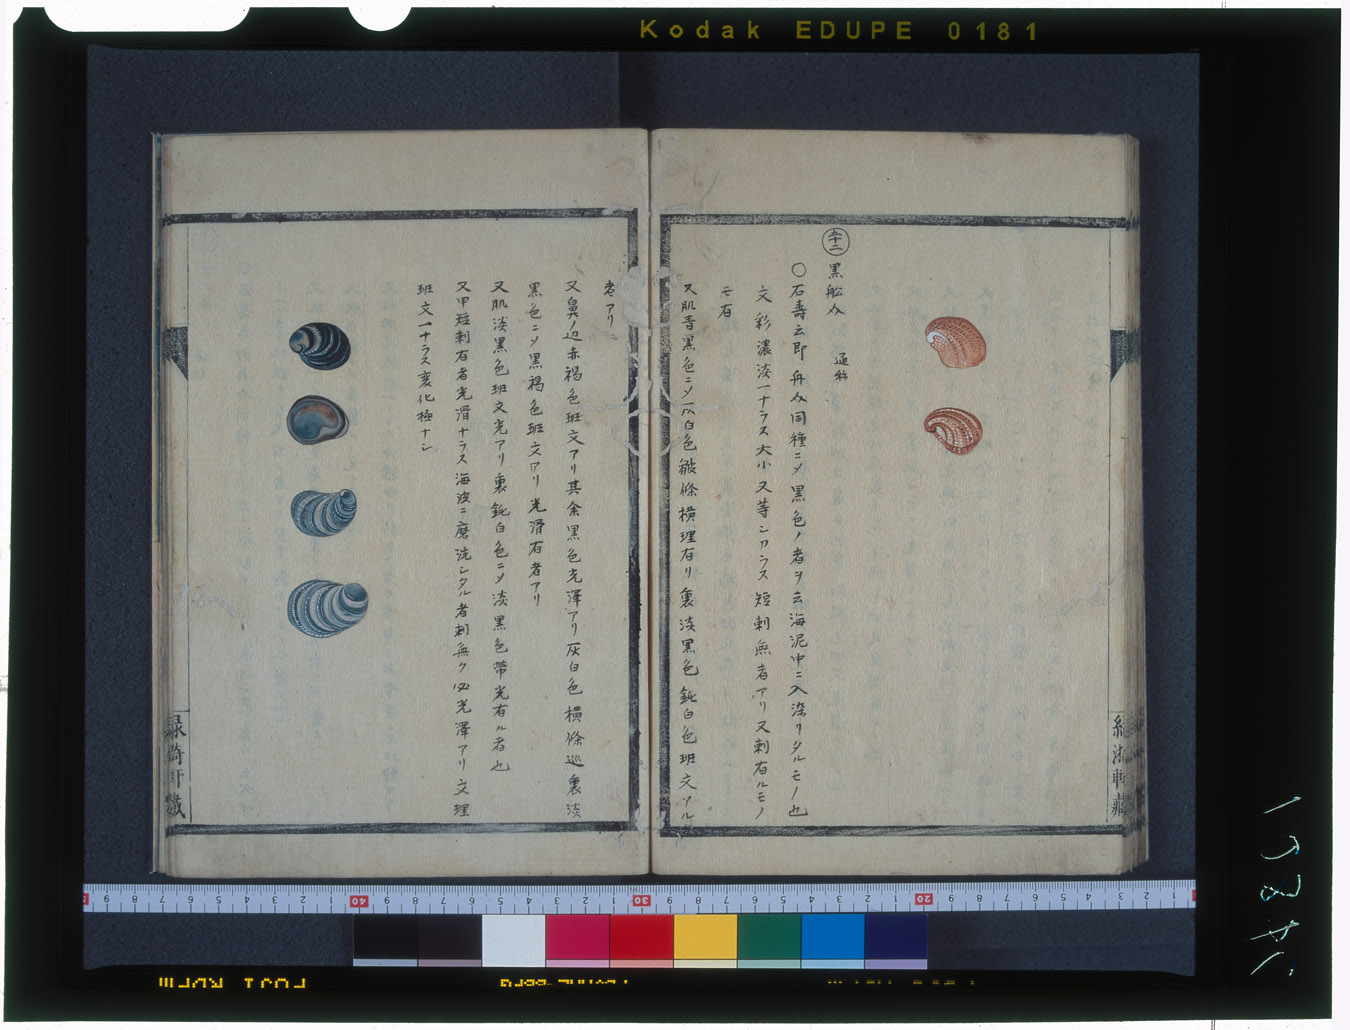 Kodak EDUPE 0181
五十二
黒舩介 通称
〇石壽云即舟介同種ニメ黒色ノ者ヲ云海泥中ニ入染リタルモノ也
文彩濃淡一ナラス大小又等シカラス短刺無者アリ又刺有ルモノ
モ右
又肌青黒色ニメ灰白色皺條横理有リ裏淡黒色鈍白色班文アル
者アリ
又鼻ノ辺赤褐色班文アリ其余黒色光澤アリ灰白色横條巡裏淡
黒色ニメ黒褐色班文アリ光滑右者アリ
又肌淡黒色班文光アリ裏鈍白色ニメ淡黒色帶光有ル者也
又甲短刺右者光滑ナラス海波ニ磨洗シタル者刺無ク必光澤アリ文理
班文一ナラス変化極ナシ